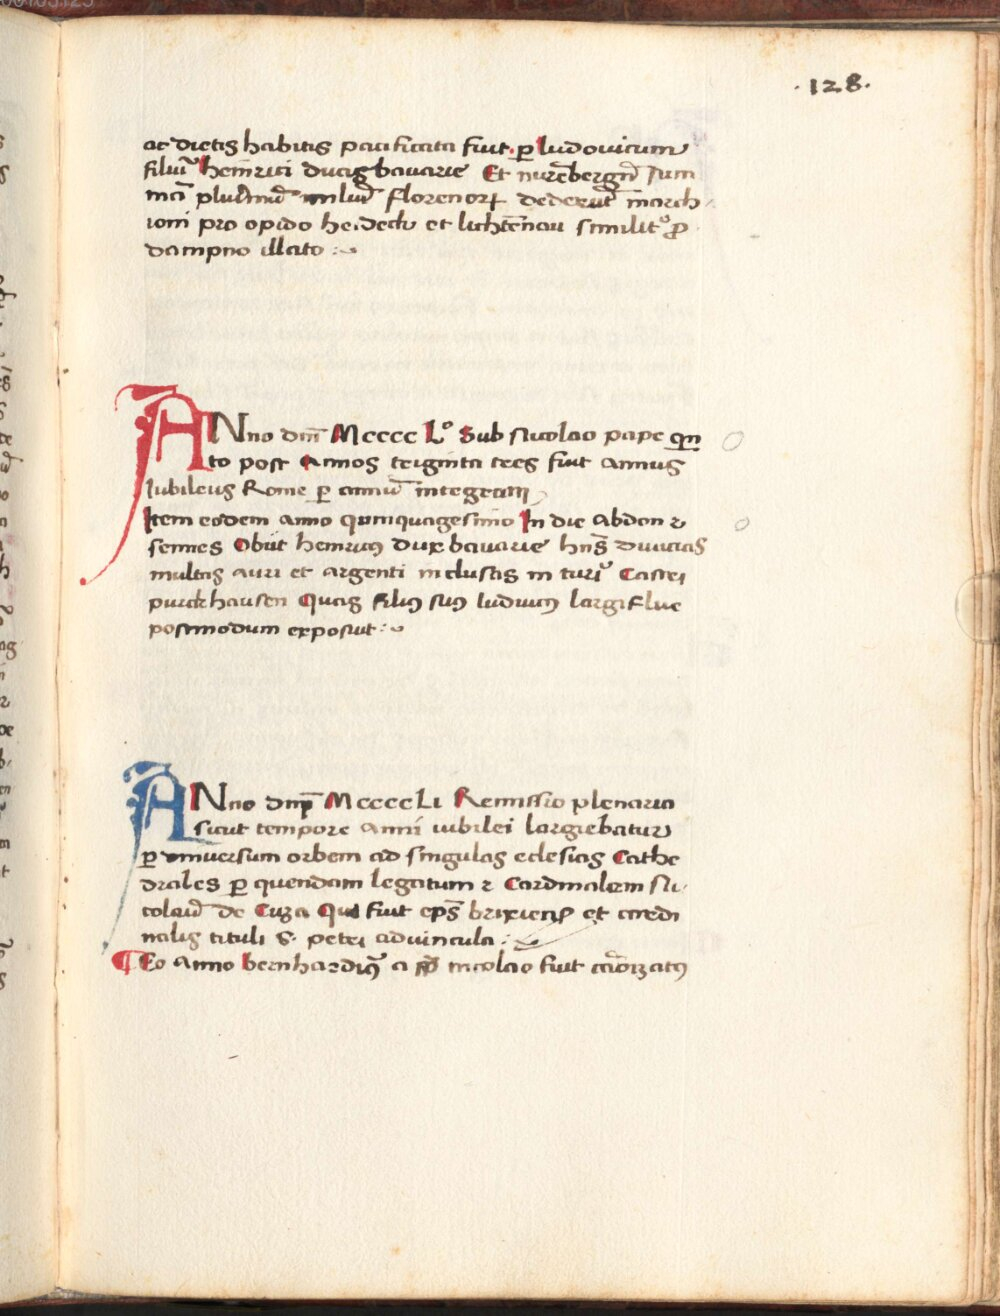 ·128·
ac dietis habitis pacificata fuit. ꝑ ludovicum
filiū heinrici ducis bavarie Et nurēbergn̄ sum
mā plurimū miliū florenoꝝ dederūt march
ioni pro opido heideck et lichtēnau similitᵒ ꝓ
dampno illato
ANno dm̄ Mcccc Lᵒ Sub nicolao pape qin
to post Annos triginta tres fuit annus
Iubileus Rome ꝑ annū integram
Item eodem anno quinquagesimo In die Abdon ⁊
sennes Obiit heinricꝰ dux bavarie hn̄s divicias
multas auri et argenti inclusas in turiᵒ Castri
purckhausen Quas filiꝰ suꝰ ludvicꝰ largiflue
postmodum exposuit
ANno dnī MccccLi Remissio plenaria
sicut tempore Anni iubilei largiebatur
ꝑ universum orbem ad singulas eclesias Cathe
drales ꝑ quendam legatum ⁊ Cardinalem ni
colaū de Cuza Qui fuit ep̄s brixien̄ et cardi
nalis tituli S. petri advincula
¶ Eo Anno bernhardinꝰ a nicolao fuit cāōizatꝰ